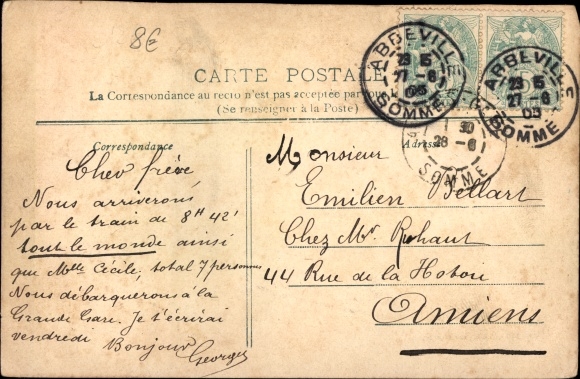 8€
CARTE POSTALE
La Correspondance au recto n'est pas acceptée par
(Se renseigner à la Poste)
Correspondance
Adresse
ABBEVILLE
23 15
27 - 6
05
SOMME
ABBEVILLE
23 15
27 - 6
05
SOMME
30
28 - 6
SOMME
Cher frère
Nous arriverons
par le train de 8H 42'
tout le monde ainsi
que Mlle Cécile, total 7 personnes
Nous débarquerons à la
Grande Gare. Je t'écrirai
vendredi Bonjour
Georges
Monsieur
Emilien Bellart
Chez Mr. Ruhaut
44 Rue de la Hotoie
Amiens